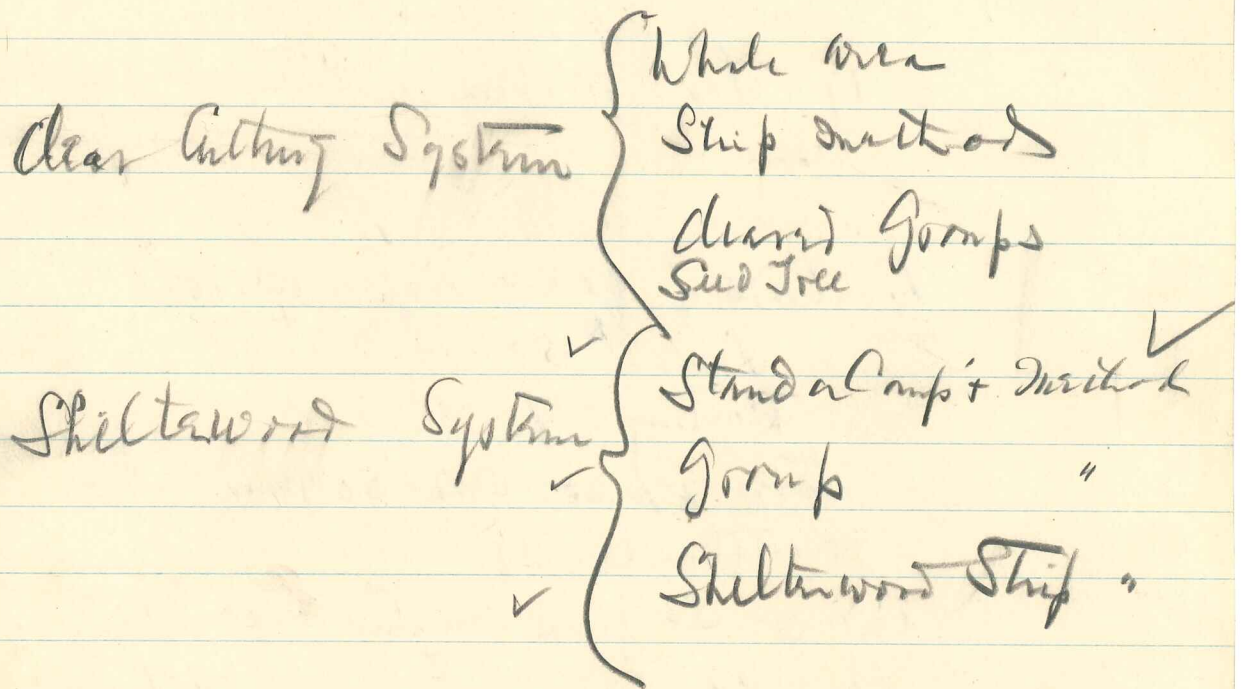 Clear Cutting System
Whole area
Strip methods
Cleared Groups
Seed Tree
Shelterwood System
Stand or Comp't method
Group "
Shelterwood Strip "